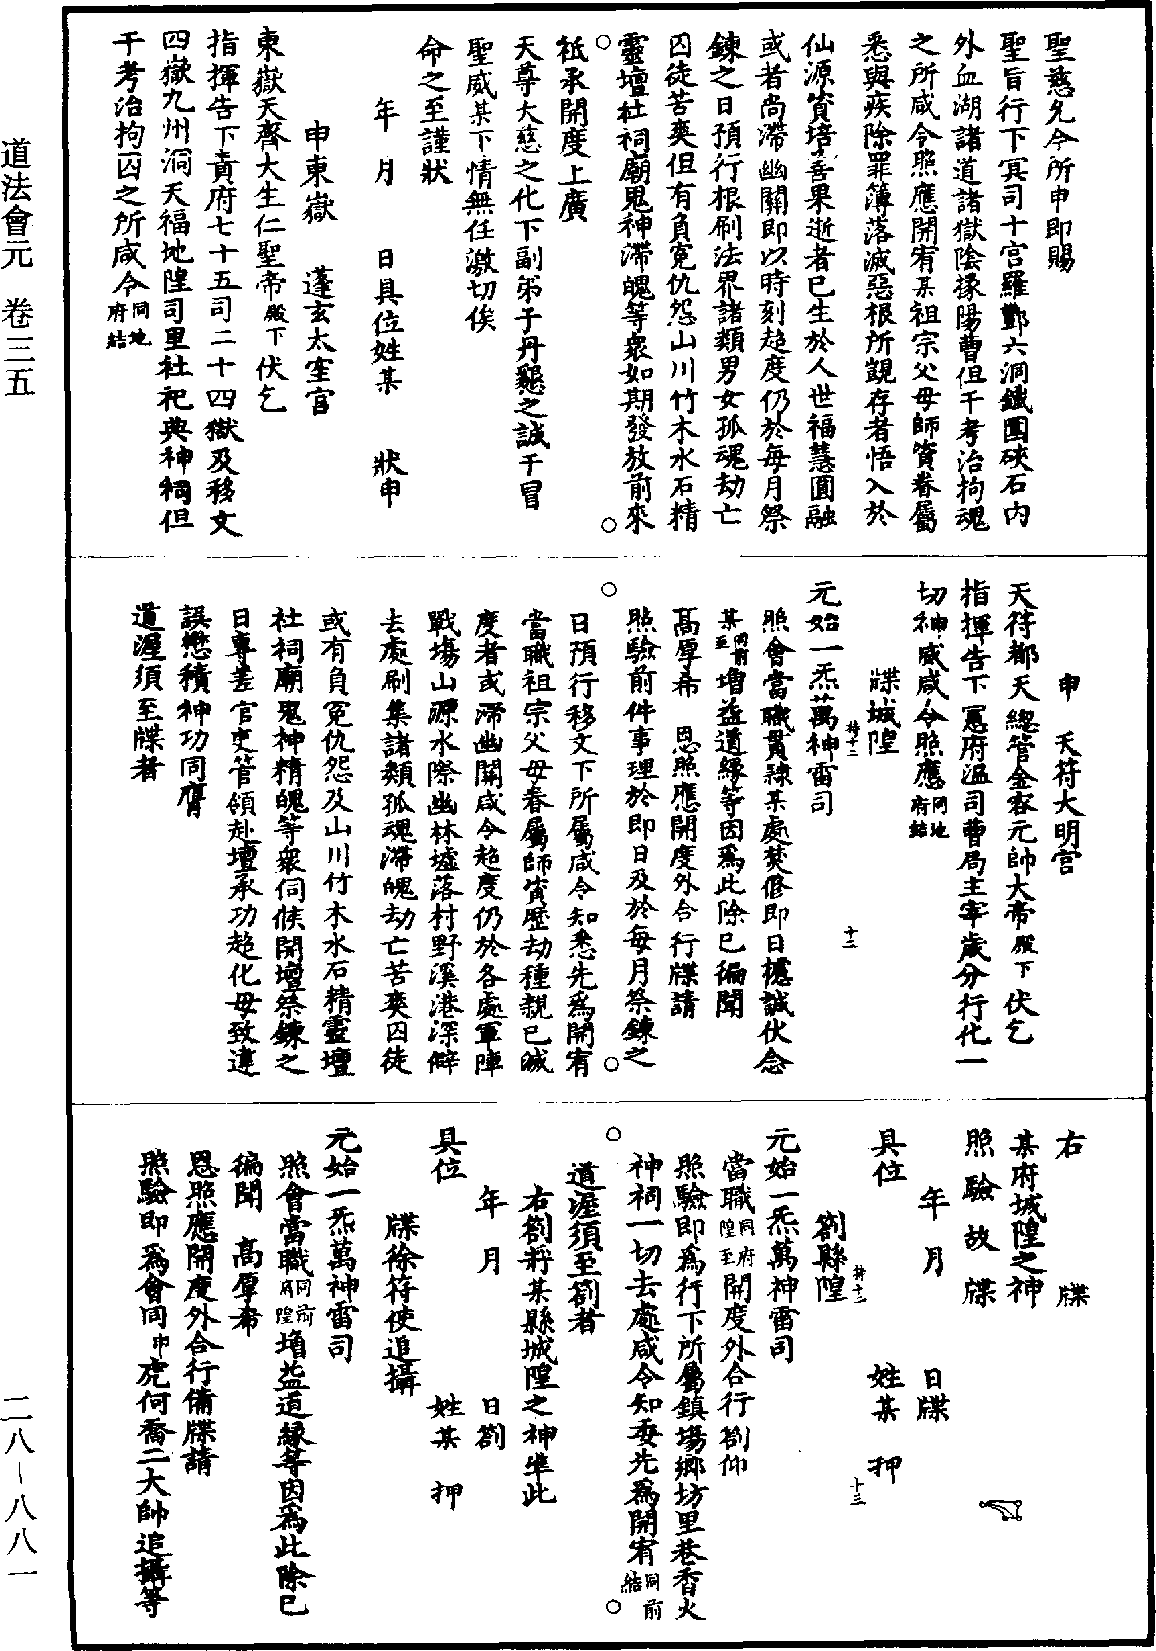 聖慈允今所申即賜
聖旨行下冥司十宮羅酆六洞鐵圍硤石內
外血湖諸道諸獄陰掾陽曹但干考治拘魂
之所咸令照應開宥某祖宗父母師資眷屬
悉與疾除罪簿落滅惡根所覬存者悟入於
仙源資培善果逝者已生於人世福慧圓融
或者尚滯幽關即以時刻超度仍於每月祭
鍊之日預行根刷法界諸類男女孤魂劫亡
囚徒苦爽但有負冤仇怨山川竹木水石精
靈壇社祠廟鬼神滯魄等眾如期發放前來
祗承開度上廣
天尊大慈之化下副弟子丹懇之誠干冒
聖威某下情無任激切俟
命之至謹狀
年 月 日具位姓某 狀申
申東嶽 蓬玄太空宮
東嶽天齊大生仁聖帝殿下伏乞
指揮告下賁府七十五司二十四獄及移文
四嶽九州洞天福地隍司里社祀典神祠但
干考治拘囚之所咸令同地府結
申 天符大明宮
天符都天總管金容元帥大帝殿下伏乞
指揮告下憲府溫司曹局主宰歲分行化一
切神威咸令照應同地府結
牒城隍
元始一炁萬神雷司
照會當職貫隸某處焚修即日攄誠伏念
某同前至增益道緣等因為此除已徧聞
高厚希 恩照應開度外合行牒請
照驗前件事理於即日及於每月祭鍊之
日預行移文下所屬咸令知悉先為開宥
當職祖宗父母眷屬師資歷劫種親已滅
度者或滯幽關咸令超度仍於各處軍陣
戰場山源水際幽林墟落村野溪港深僻
去處刷集諸類孤魂滯魄劫亡苦爽囚徒
或有負冤仇怨及山川竹木水石精靈壇
社祠廟鬼神精魄等眾伺候開壇祭鍊之
日專差官吏管領赴壇承功超化毋致違
誤懋積神功同膺
道渥須至牒者
右 牒
某府城隍之神
照驗故牒
年 月 日牒
具位 姓某 押
劄縣隍
元始一炁萬神雷司
當職同府隍至開度外合行劄仰
照驗即為行下所屬鎮場鄉坊里巷香火
神祠一切去處咸令知委先為開宥同前結
道渥須至劄者
右劄將某縣城隍之神準此
年 月 日劄
具位 姓某 押
牒徐符使追攝
元始一炁萬神雷司
照會當職同前府隍增益道緣等因為此除已
徧聞 高厚希
恩照應開度外合行備牒請
照驗即為會同申虎何喬二大帥追攝等
道法會元 卷三五
二八—八八一